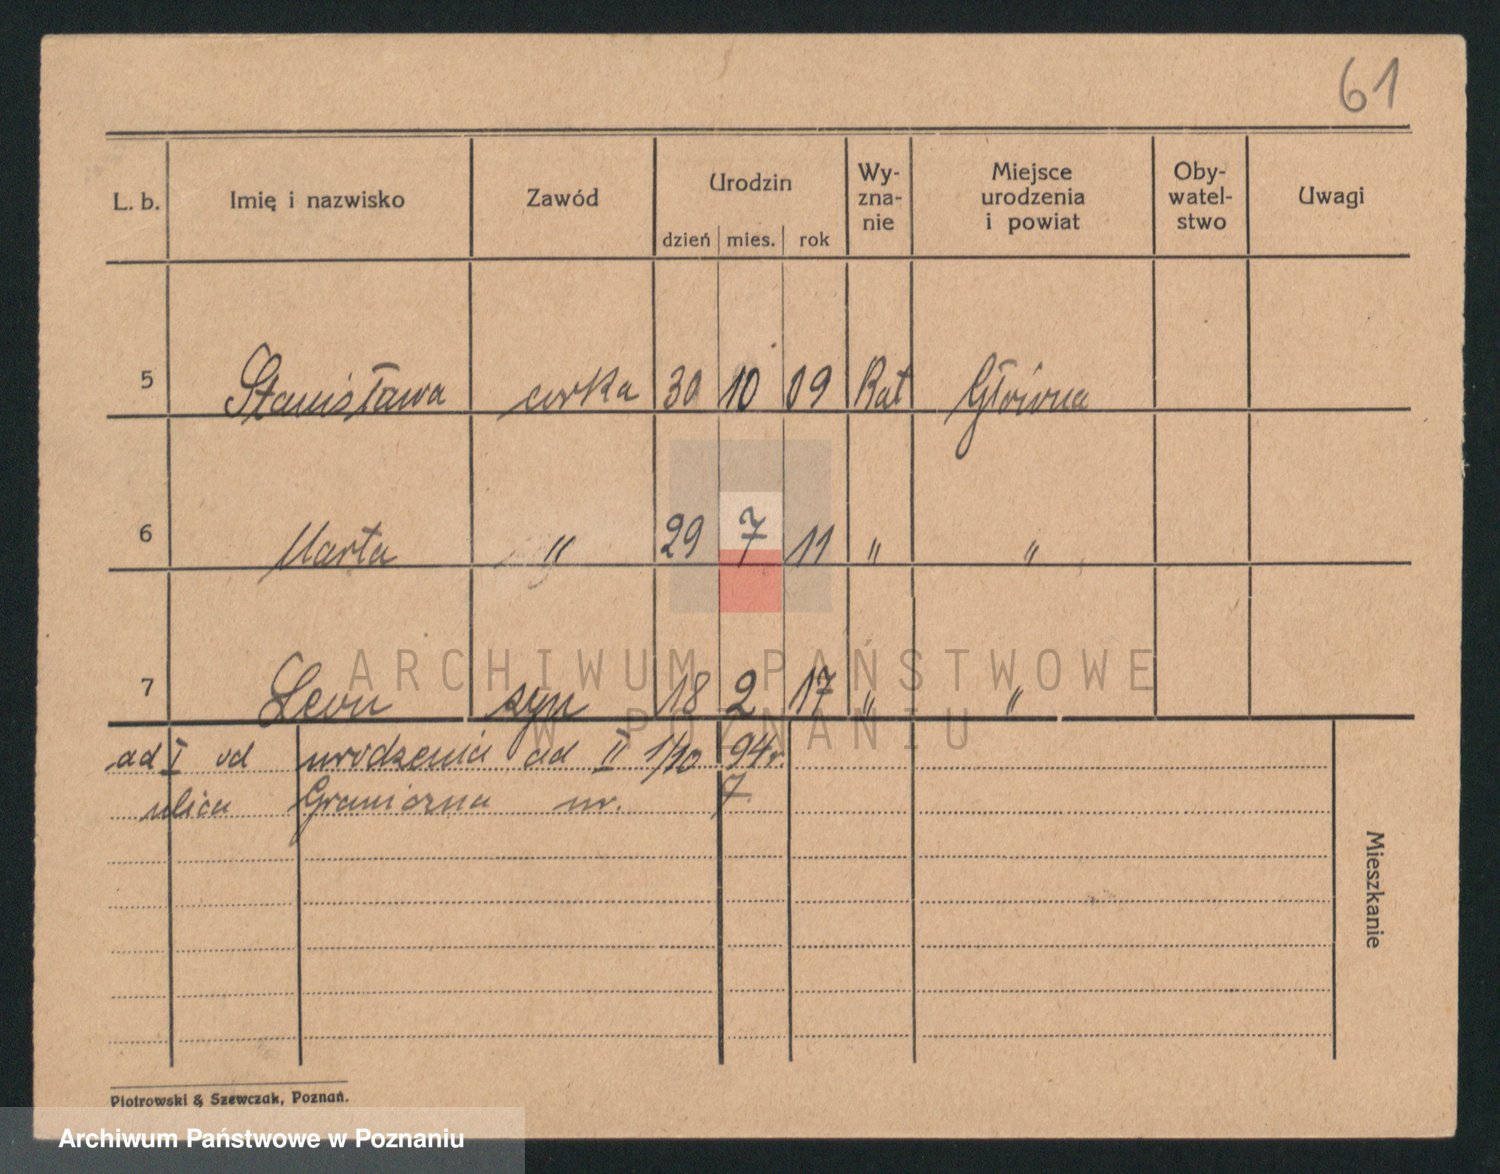 61
L. b. Imię i nazwisko Zawód Urodzin dzień mies. rok Wy-zna-nie Miejsce urodzenia i powiat Oby-watel-stwo Uwagi
5 Stanisława corka 30 10 09 Kat Główna
6 Marta " 29 7 11 " "
7 Leon syn 18 2 17 " "
ARCHIWUM PAŃSTWOWE
W POZNANIU
ad I od urodzenia ad II 1/10 94r.
ulica Graniczna nr. 7
Mieszkanie
Piotrowski & Szewczak, Poznań.
Archiwum Państwowe w Poznaniu